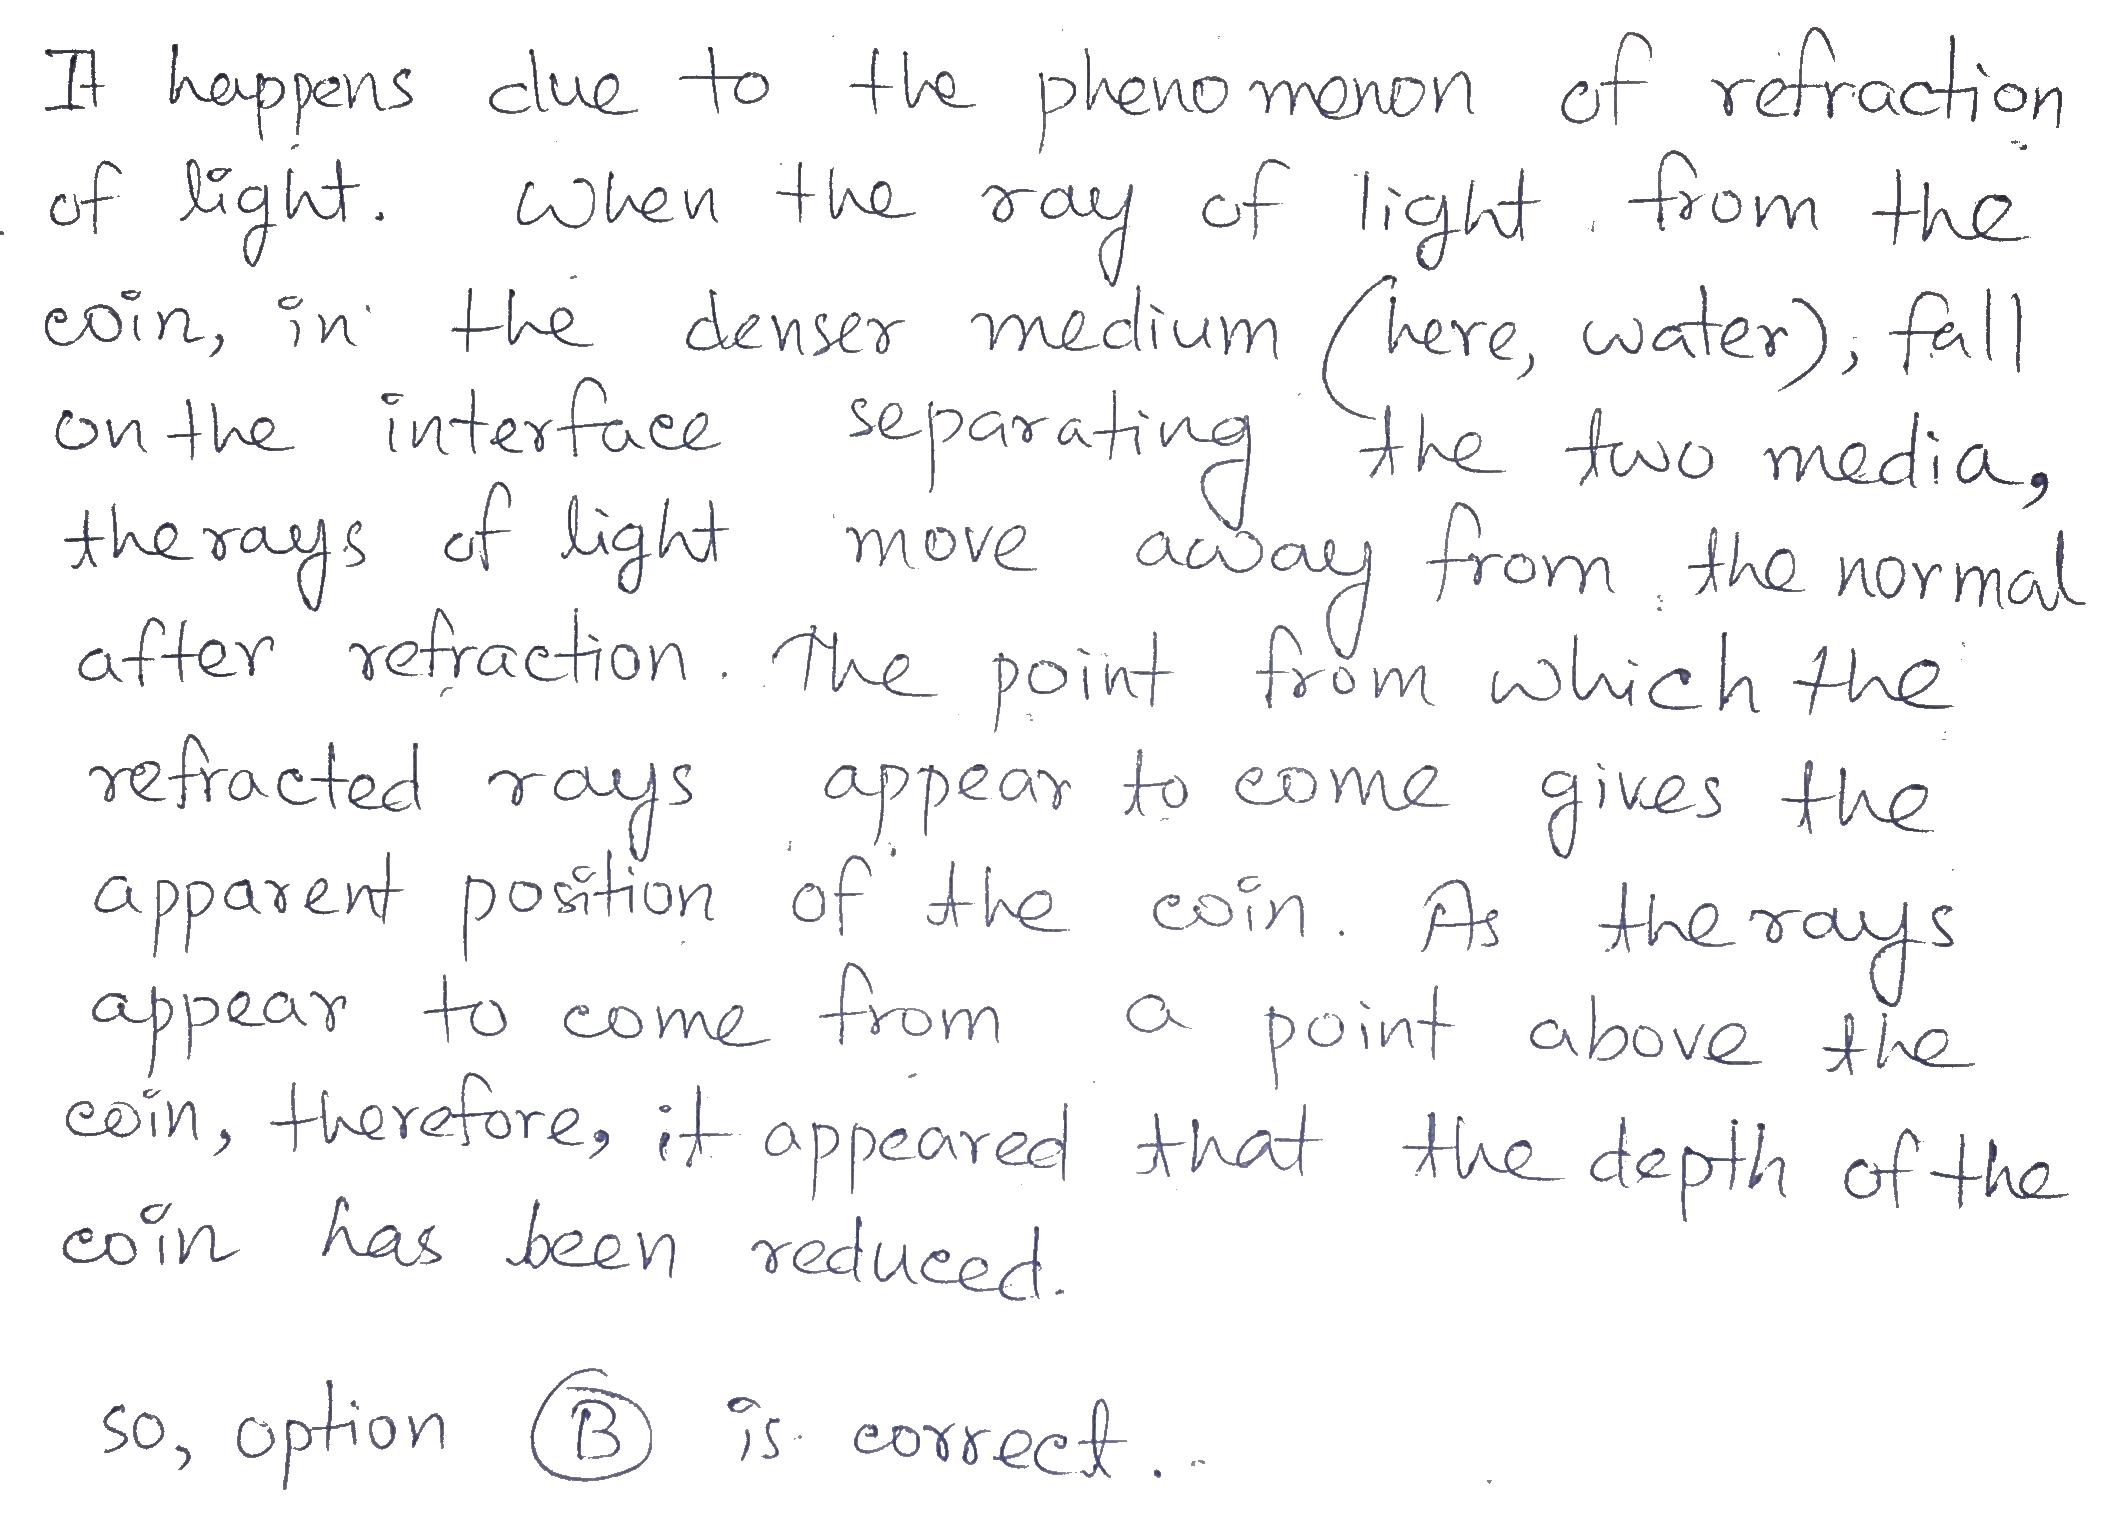 It happens due to the phenomenon of refraction
of light. When the ray of light from the
coin, in the denser medium (here, water), fall
on the interface separating the two media,
the rays of light move away from the normal
after refraction. The point from which the
refracted rays appear to come gives the
apparent position of the coin. As the rays
appear to come from a point above the
coin, therefore, it appeared that the depth of the
coin has been reduced.
so, option B is correct.